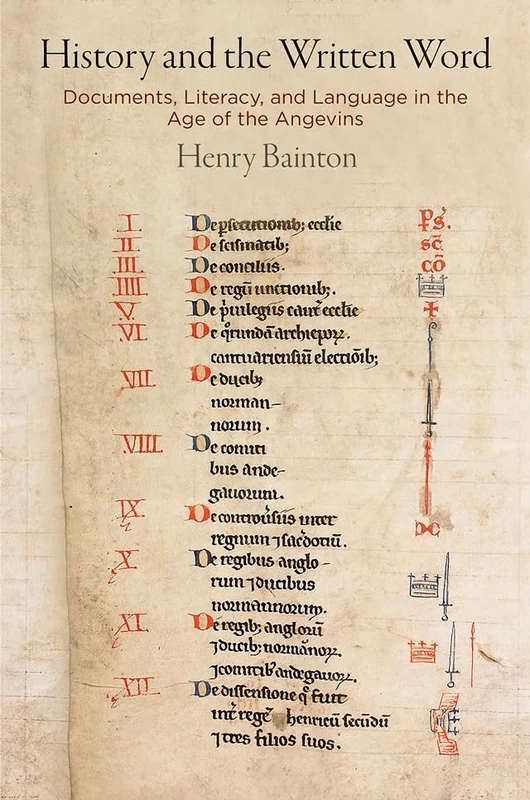 History and the Written Word
Documents, Literacy, and Language in the
Age of the Angevins
Henry Bainton
I. De p̱secutionib; ecclie p̄s.
II. De scismatib; sc̄
III. De conciliis. cō
IIII. De regū unctionib;.
V. De p̓uilegiis cant̓ ecclie
VI. De q̓rundā archiepoꝝ.
cantuariensiū electiōib;
VII. De ducib;
norman-
norum.
VIII. De comiti
bus ande-
gauorum.
IX. De controu̓siis inter
regnum ⁊ sac̓dotiū.
X. De regibus anglo-
rum ⁊ ducibus
normannorum.
XI. De regib; anglorū
⁊ ducib; normānoꝝ.
⁊ comitib; andegauoꝝ.
XII. De dissensione q̄ fuit
int̓ regē henricū secūdū
⁊ tres filios suos.